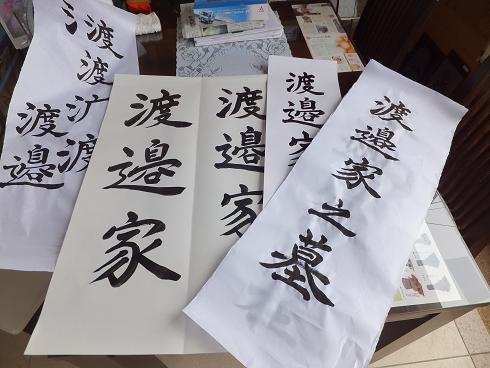 渡邉家之墓
渡邉家
渡邉家
渡邉家
渡渡
渡
渡
渡邉